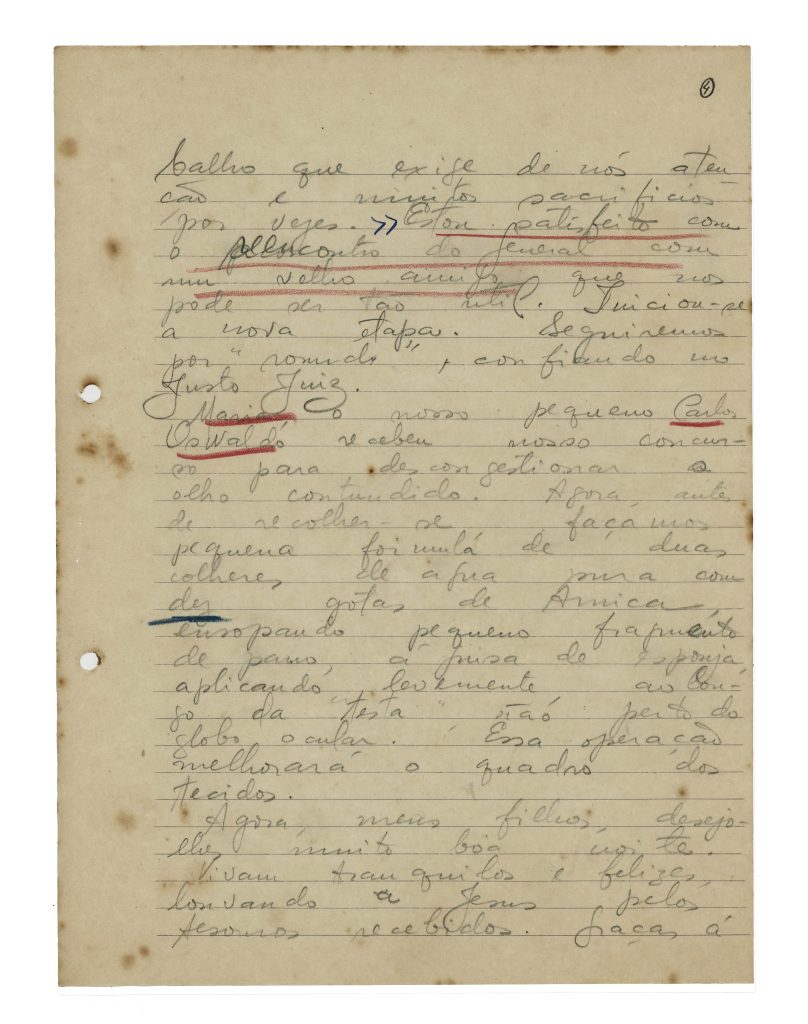 4
balho que exige de nós aten
ção e muitos sacrificios
por vezes. >> Estou satisfeito com
o reencontro do general com
um velho amigo que nos
pode ser tão util. Iniciou-se
a nova etapa. Seguiremos
por "
", confiando no
Justo Juiz.
Maria o nosso pequeno Carlos
Oswaldo recebeu nosso concur-
so para descongestionar o
olho contundido. Agora, antes
de recolher-se façamos
pequena formulá de duas
colheres de agua pura com
dez gotas de Arnica,
ensopando pequeno fragmento
de pano, á guisa de esponja,
aplicando levemente ao lon-
go da "testa" não perto do
globo ocular. Essa operação
melhorará o quadro dos
tecidos.
Agora, meus filhos, desejo-
lhes muito bôa noite.
Vivam tranquilos e felizes,
louvando a Jesus pelos
tesouros recebidos. Graças á